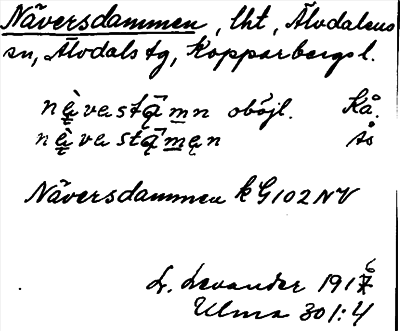 Näversdammen, lht, Älvdalens
sn, Älvdals tg, Kopparbergs l.
nä̀vastą̄mn obojl. Kå.
nä̀vastą̄mąn so
Näversdammen k G102NV
L. Levander 1916
Ulma 301:4